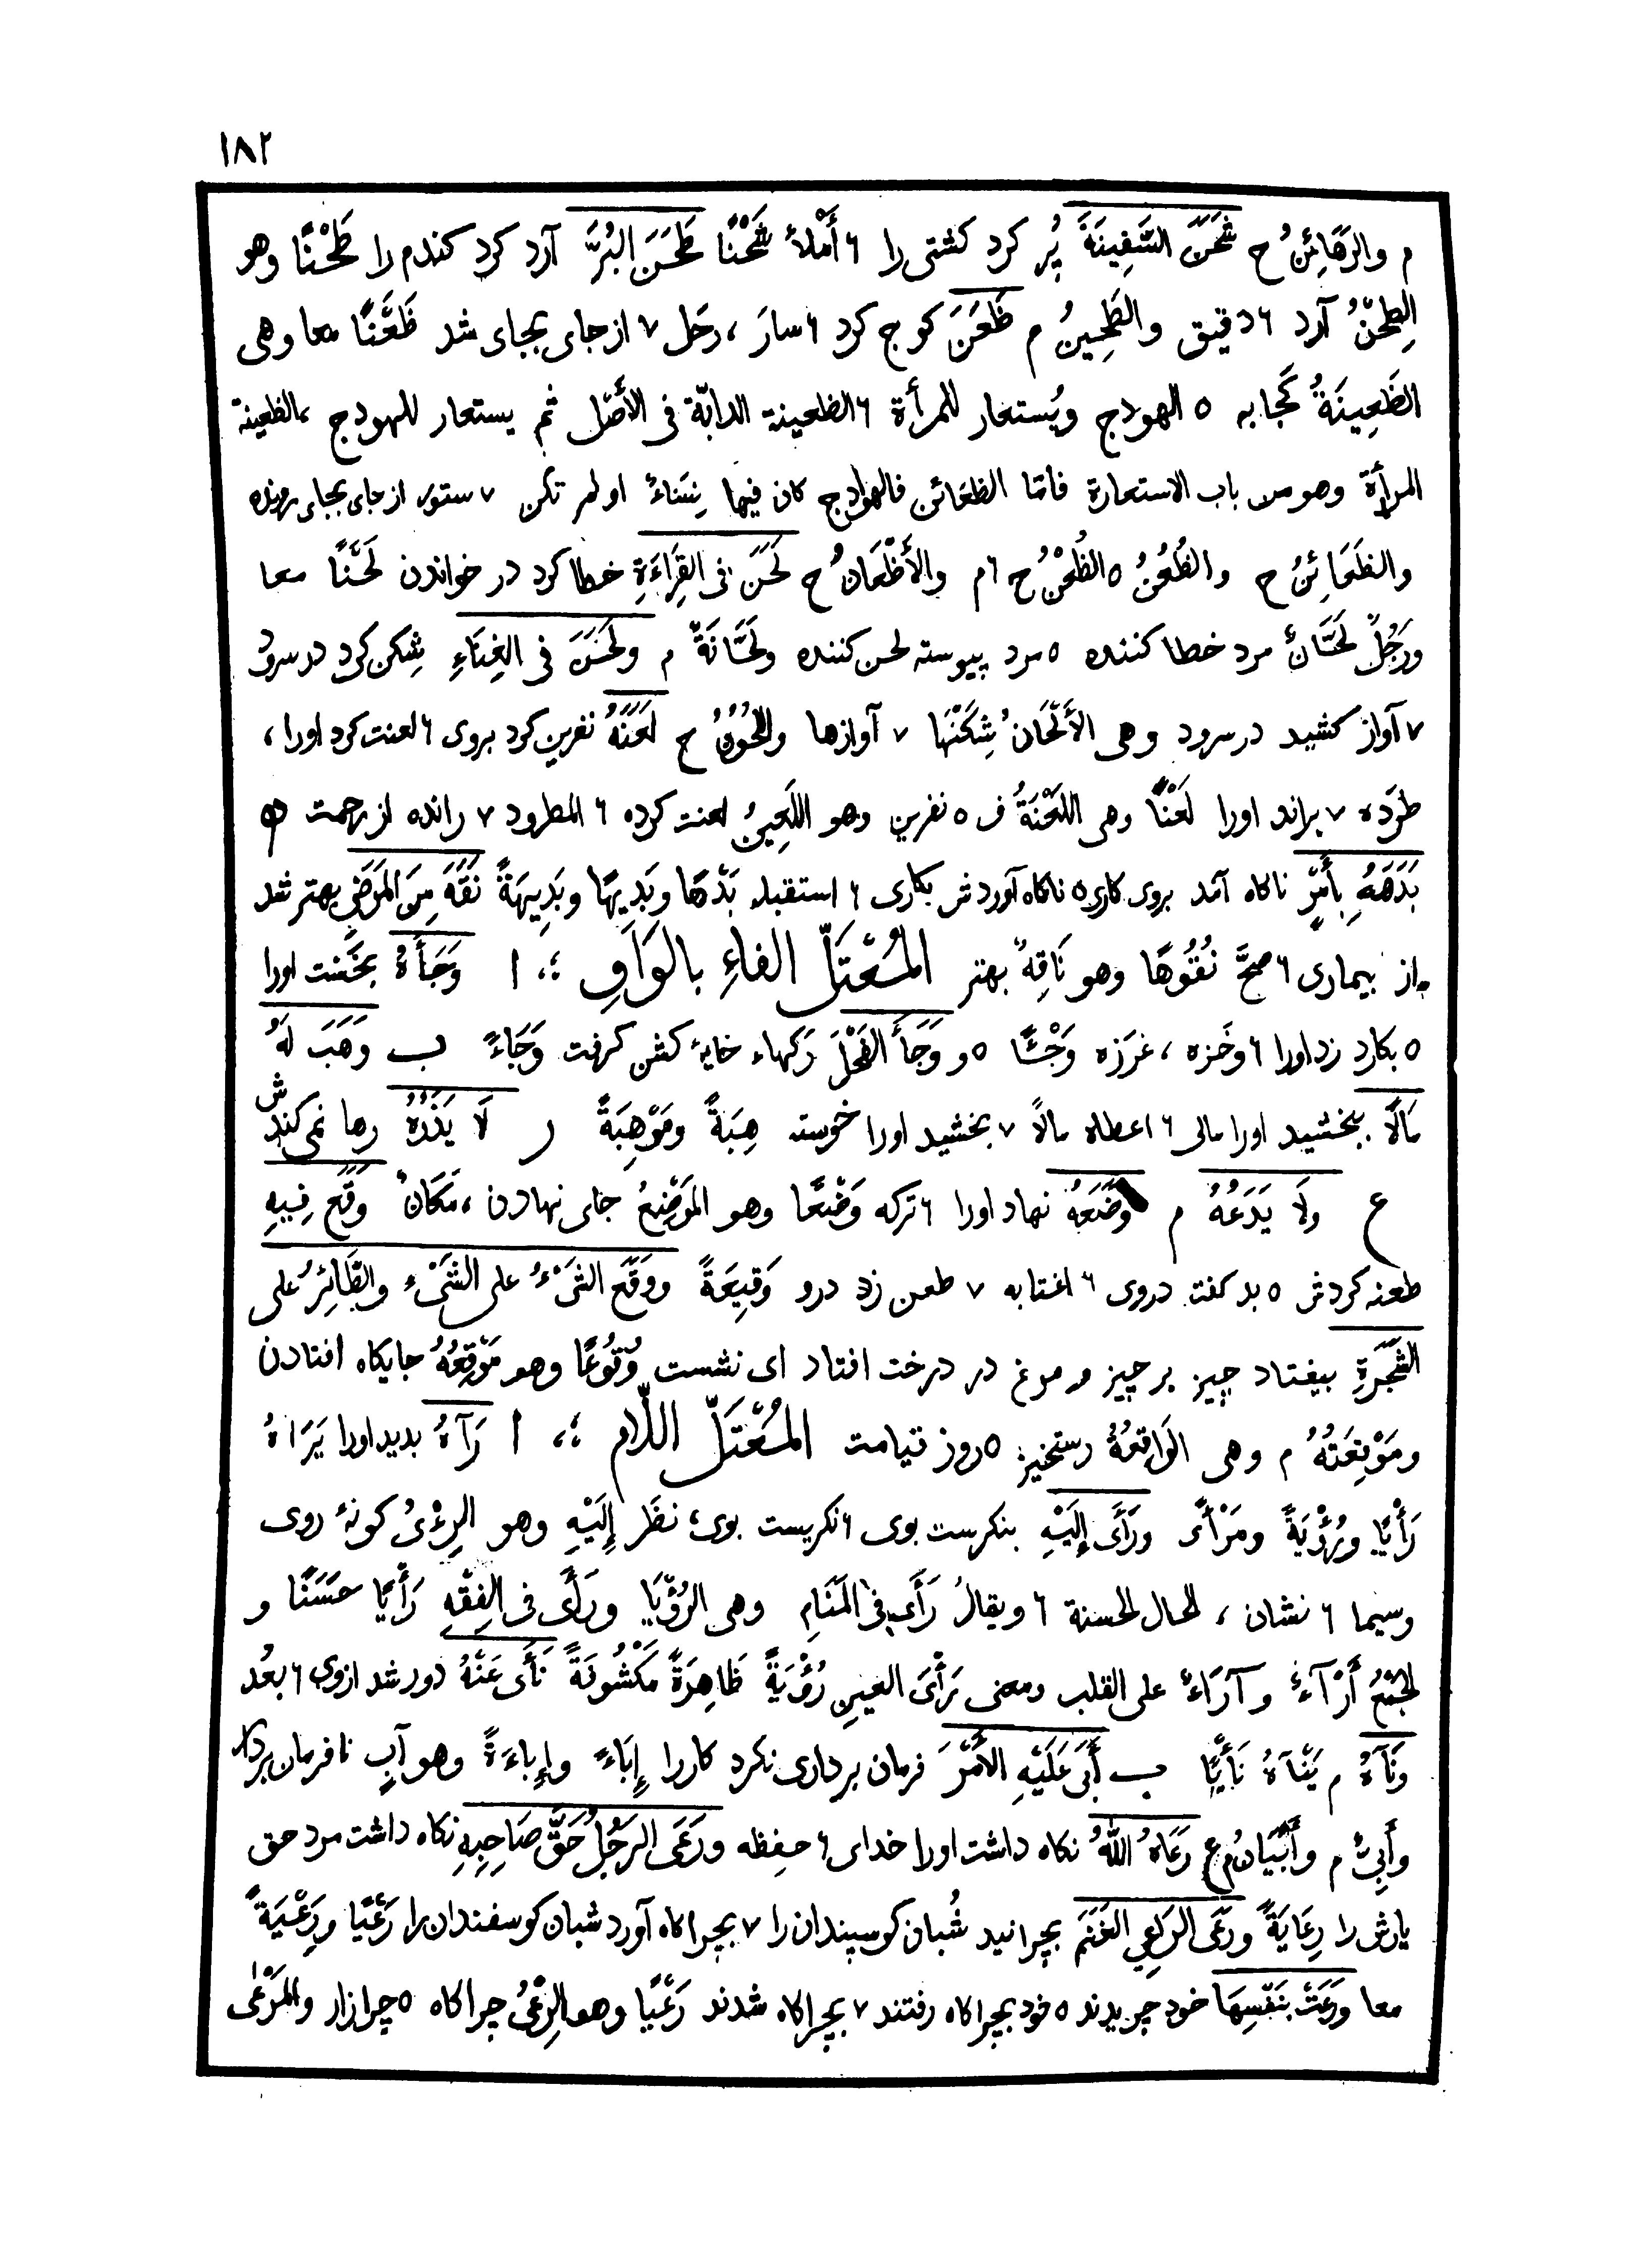 ١٨٢
م والرَهَائِنُ ح شَحَنَ السَّفِينَةَ پُر کرد کشتی را ٦ أَمْلأ شَحْنًا طَحَنَ البُرَّ آرد کرد کندم را طَحْنًا وهو
الطِحْنُ آرد ٦ دقیق والطَحِینُ م ظَعَنَ کوج کرد ٦ سارَ ، رحَل ٧ از جای بجای شد ظَعَنًا معا وهی
الظَعِینَةُ کَجابه ٥ الهودج ویُستعار للمرأة ٦ الظعینة الدابّة فی الأصْل ثم یستعار للهودج ، الظعینة
المرأة وهو من باب الاستعارة فامّا الظعائن فالهوادج کان فیها نِسَاءُ او لم تکن ٧ ستور از جای بجای رونده
والظَعَائِنُ ح والظُعُنُ ٥ الظُعْنُ ح ٦ م والأَظْعَانُ ح لَحَنَ فی القِرَاءَةِ خطا کرد در خواندن لَحَنًا معا
ورَجُلٌ لَحَّانٌ مرد خطا کننده ٥ مرد پیوسته لحن کننده ولَحَّانَةٌ م ولَحَنَ فی الغِنَاءِ شِکن کرد در سرود
٧ آواز کشید در سرود وهی الأَلْحَانُ شِکَنْها ٧ آوازها واللُحُونُ ح لَعَنَهُ نفرین کرد بروی ٦ لعنت کرد اورا ،
طرَده ٧ براند اورا لَعْنًا وهی اللَعْنَةُ ف ٥ نفرین وهو اللَعِینُ لعنت کرده ٦ المطرود ٧ رانده از رحمت ه
بَدَهَهُ بِأَمْرٍ ناکاه آمد بروی کاری ٥ ناکاه آوردش بکاری ٦ استقبله بَدْهًا وبَدِیهًا وبَدِیهَةً نَقَهَ مِنَ المَرَضِ بهتر شد
از بیماری ٦ صحَّ نُقُوهًا وهو نَاقِهٌ بهتر المُعْتَلّ الفاءِ بالوَاوِ ؛، ا وَجَأَهُ بخَست اورا
٥ بکارد زد اورا ٦ وخَزه ، غرَزه وَجْئًا ٥ و وَجَأَ الفَحْلَ رَکهاء خایۀ کشن کرفت وَجَاءً ب وَهَبَ لَهُ
مَالًا ببخشید اورا مالی ٦ اعطاه مالًا ٧ بخشید اورا خوسته هِبَةً ومَوْهِبَةً ر لَا یَذَرُهُ رها نمی کندش
ع ولَا یَدَعُهُ م وَضَعَهُ نهاد اورا ٦ ترکه وَضْعًا وهو المَوْضِعُ جای نهادن ، مَکَانٌ وَقَعَ فِیهِ
طعنه کردش ٥ بد کفت دروی ٦ اغتابه ٧ طعن زد درو وَقِیعَةً ووَقَعَ الشَیْءُ علی الشَیْءِ والطَائِرُ علی
الشَجَرَةِ بیفتاد چیز بر چیز و مرغ در درخت افتاد ای نشست وُقُوعًا وهو مَوْقِعُهُ جایکاه افتادن
ومَوْقِعَتُهُ م وهی الوَاقِعَةُ رستخیز ٥ روز قیامت المُعْتَلّ اللَّام ؛، ا رَآهُ بدید اورا یَرَاهُ
رَأْیًا ورُؤْیَةً ومَرْأًی ورَأَی إِلَیْهِ بنکرست بوی ٦ نکریست بوی ، نظَر إِلَیْهِ وهو الرِءْیُ کونۀ روی
وسیما ٦ نشان ، الحال الحسنة ٦ ویقالُ رَأَی فی المَنَامِ وهی الرُؤْیَا ورَأَی فی الفِقْهِ رَأْیًا حَسَنًا و
الجَمْعُ أَرْآءٌ وآرَاءٌ علی القلب ومعنی رَأْیَ العینِ رُؤْیَةً ظَاهِرَةً مَکْشُوفَةً نَأَی عَنْهُ دور شد ازوی ٦ بعُد
ونَآهُ م یَنْآهُ نَأْیًا ب أَبَی عَلَیْهِ الأَمْرَ فرمان برداری نکرد کار را إِبَاءً وإِباءَةً وهو آبٍ نافرمان بردار
وأَبِیٌّ م وأَبْیَانُ م ع رَعَاهُ اللهُ نکاه داشت اورا خدای ٦ حفظه ورَعَی الرَجُلُ حَقَّ صَاحِبِهِ نکاه داشت مرد حق
یارش را رِعَایَةً ورَعَی الرَاعِی الغَنَمَ بچرانید شُبان کوسپندان را ٧ بچراکاه آورد شبان کوسفندان را رَعْیًا ورِعْیَةً
معا ورَعَتْ بنَفْسِهَا خود چریدند ٥ خود بچراکاه رفتند ٧ بچراکاه شدند رَعْیًا وهو الرِعْیُ چراکاه ٥ چرازار والمَرْعَی